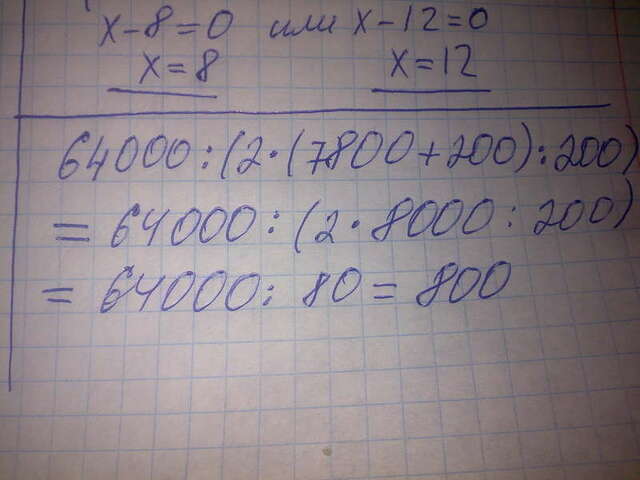 x-8=0 или x-12=0
x=8 x=12
64000:(2·(7800+200):200)
= 64000:(2·8000:200)
= 64000:80=800